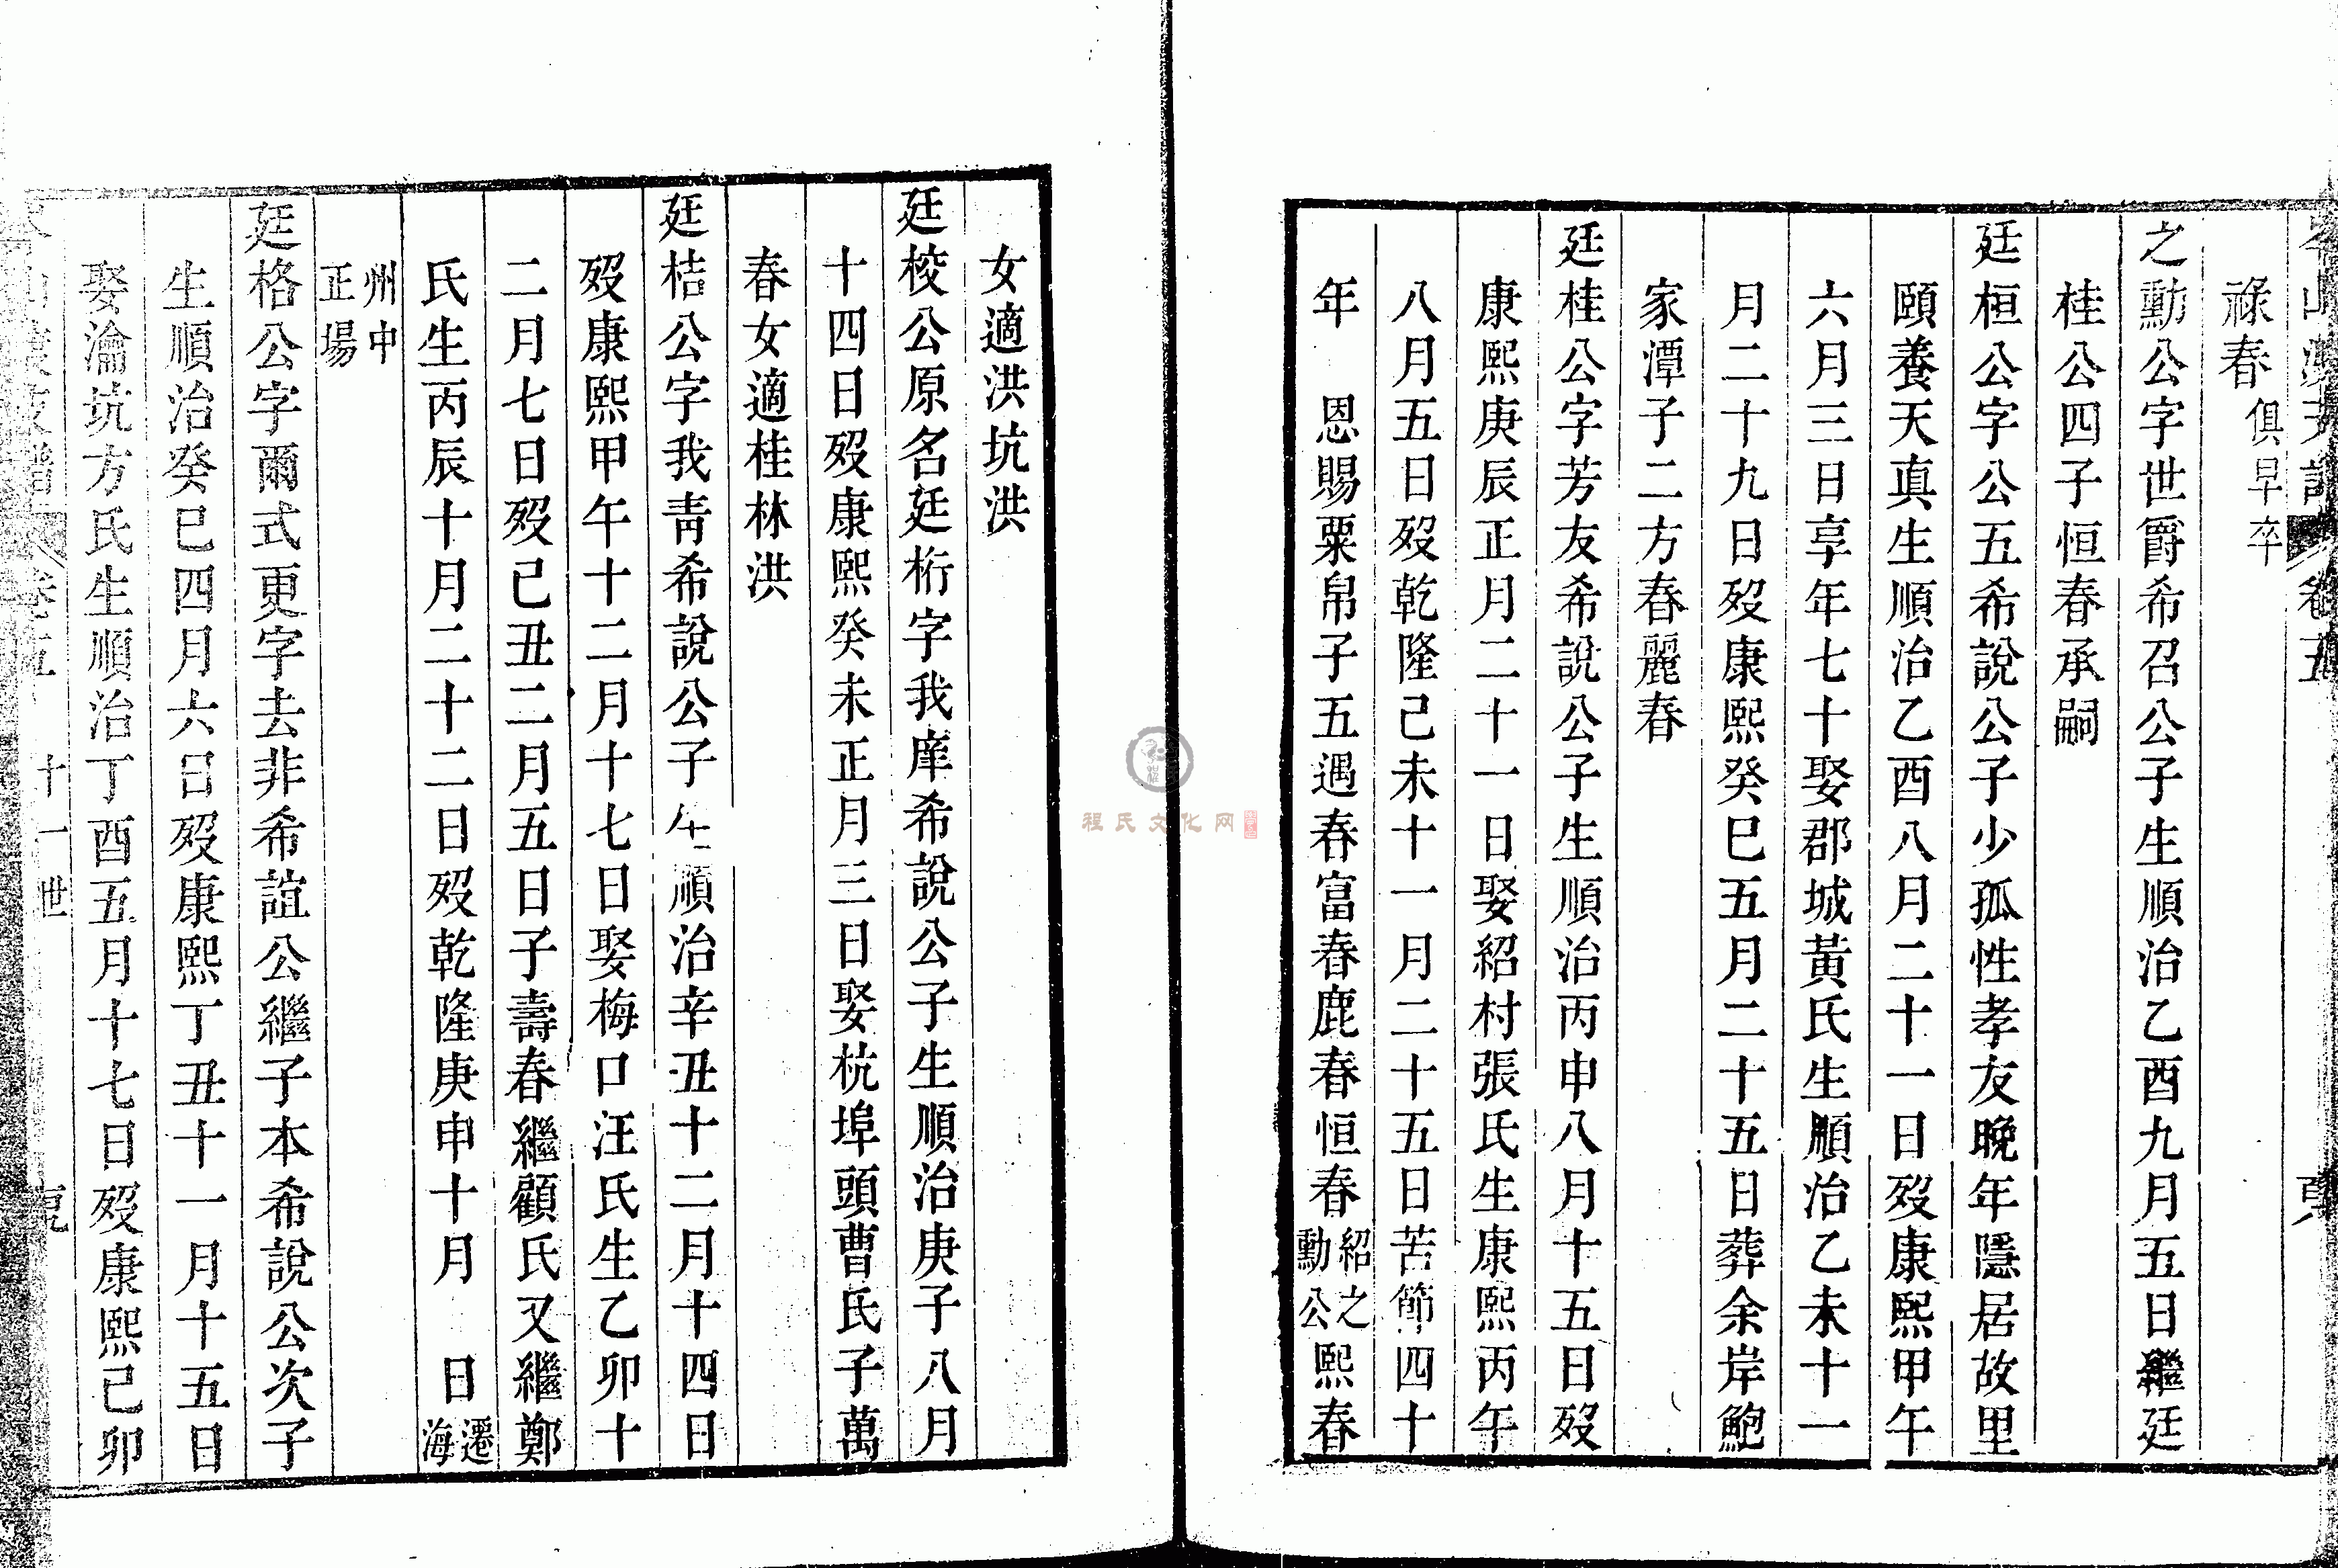 祿春俱早卒
之勳公字世爵希召公子生順治乙酉九月五日繼廷
桂公四子恒春承嗣
廷桓公字公五希說公子少孤性孝友晚年隱居故里
頤養天真生順治乙酉八月二十一日歿康熙甲午
六月三日享年七十娶郡城黃氏生順治乙未十一
月二十九日歿康熙癸巳五月二十五日葬余岸鮑
家潭子二方春麗春
廷桂公字芳友希說公子生順治丙申八月十五日歿
康熙庚辰正月二十一日娶紹村張氏生康熙丙午
八月五日歿乾隆己未十一月二十五日苦節四十
年　恩賜粟帛子五遇春富春鹿春恒春紹之勳公熙春
女適洪坑洪
廷校公原名廷桁字我庠希說公子生順治庚子八月
十四日歿康熙癸未正月三日娶杭埠頭曹氏子萬
春女適桂林洪
廷桔公字我青希說公子生順治辛丑十二月十四日
歿康熙甲午十二月十七日娶梅口汪氏生乙卯十
二月七日歿己丑二月五日子壽春繼顧氏又繼鄭
氏生丙辰十月二十二日歿乾隆庚申十月　日遷海
州中正場
廷格公字爾式更字去非希誼公繼子本希說公次子
生順治癸巳四月六日歿康熙丁丑十一月十五日
娶瀹坑方氏生順治丁酉五月十七日歿康熙己卯
卷五　十一世
程氏文化网